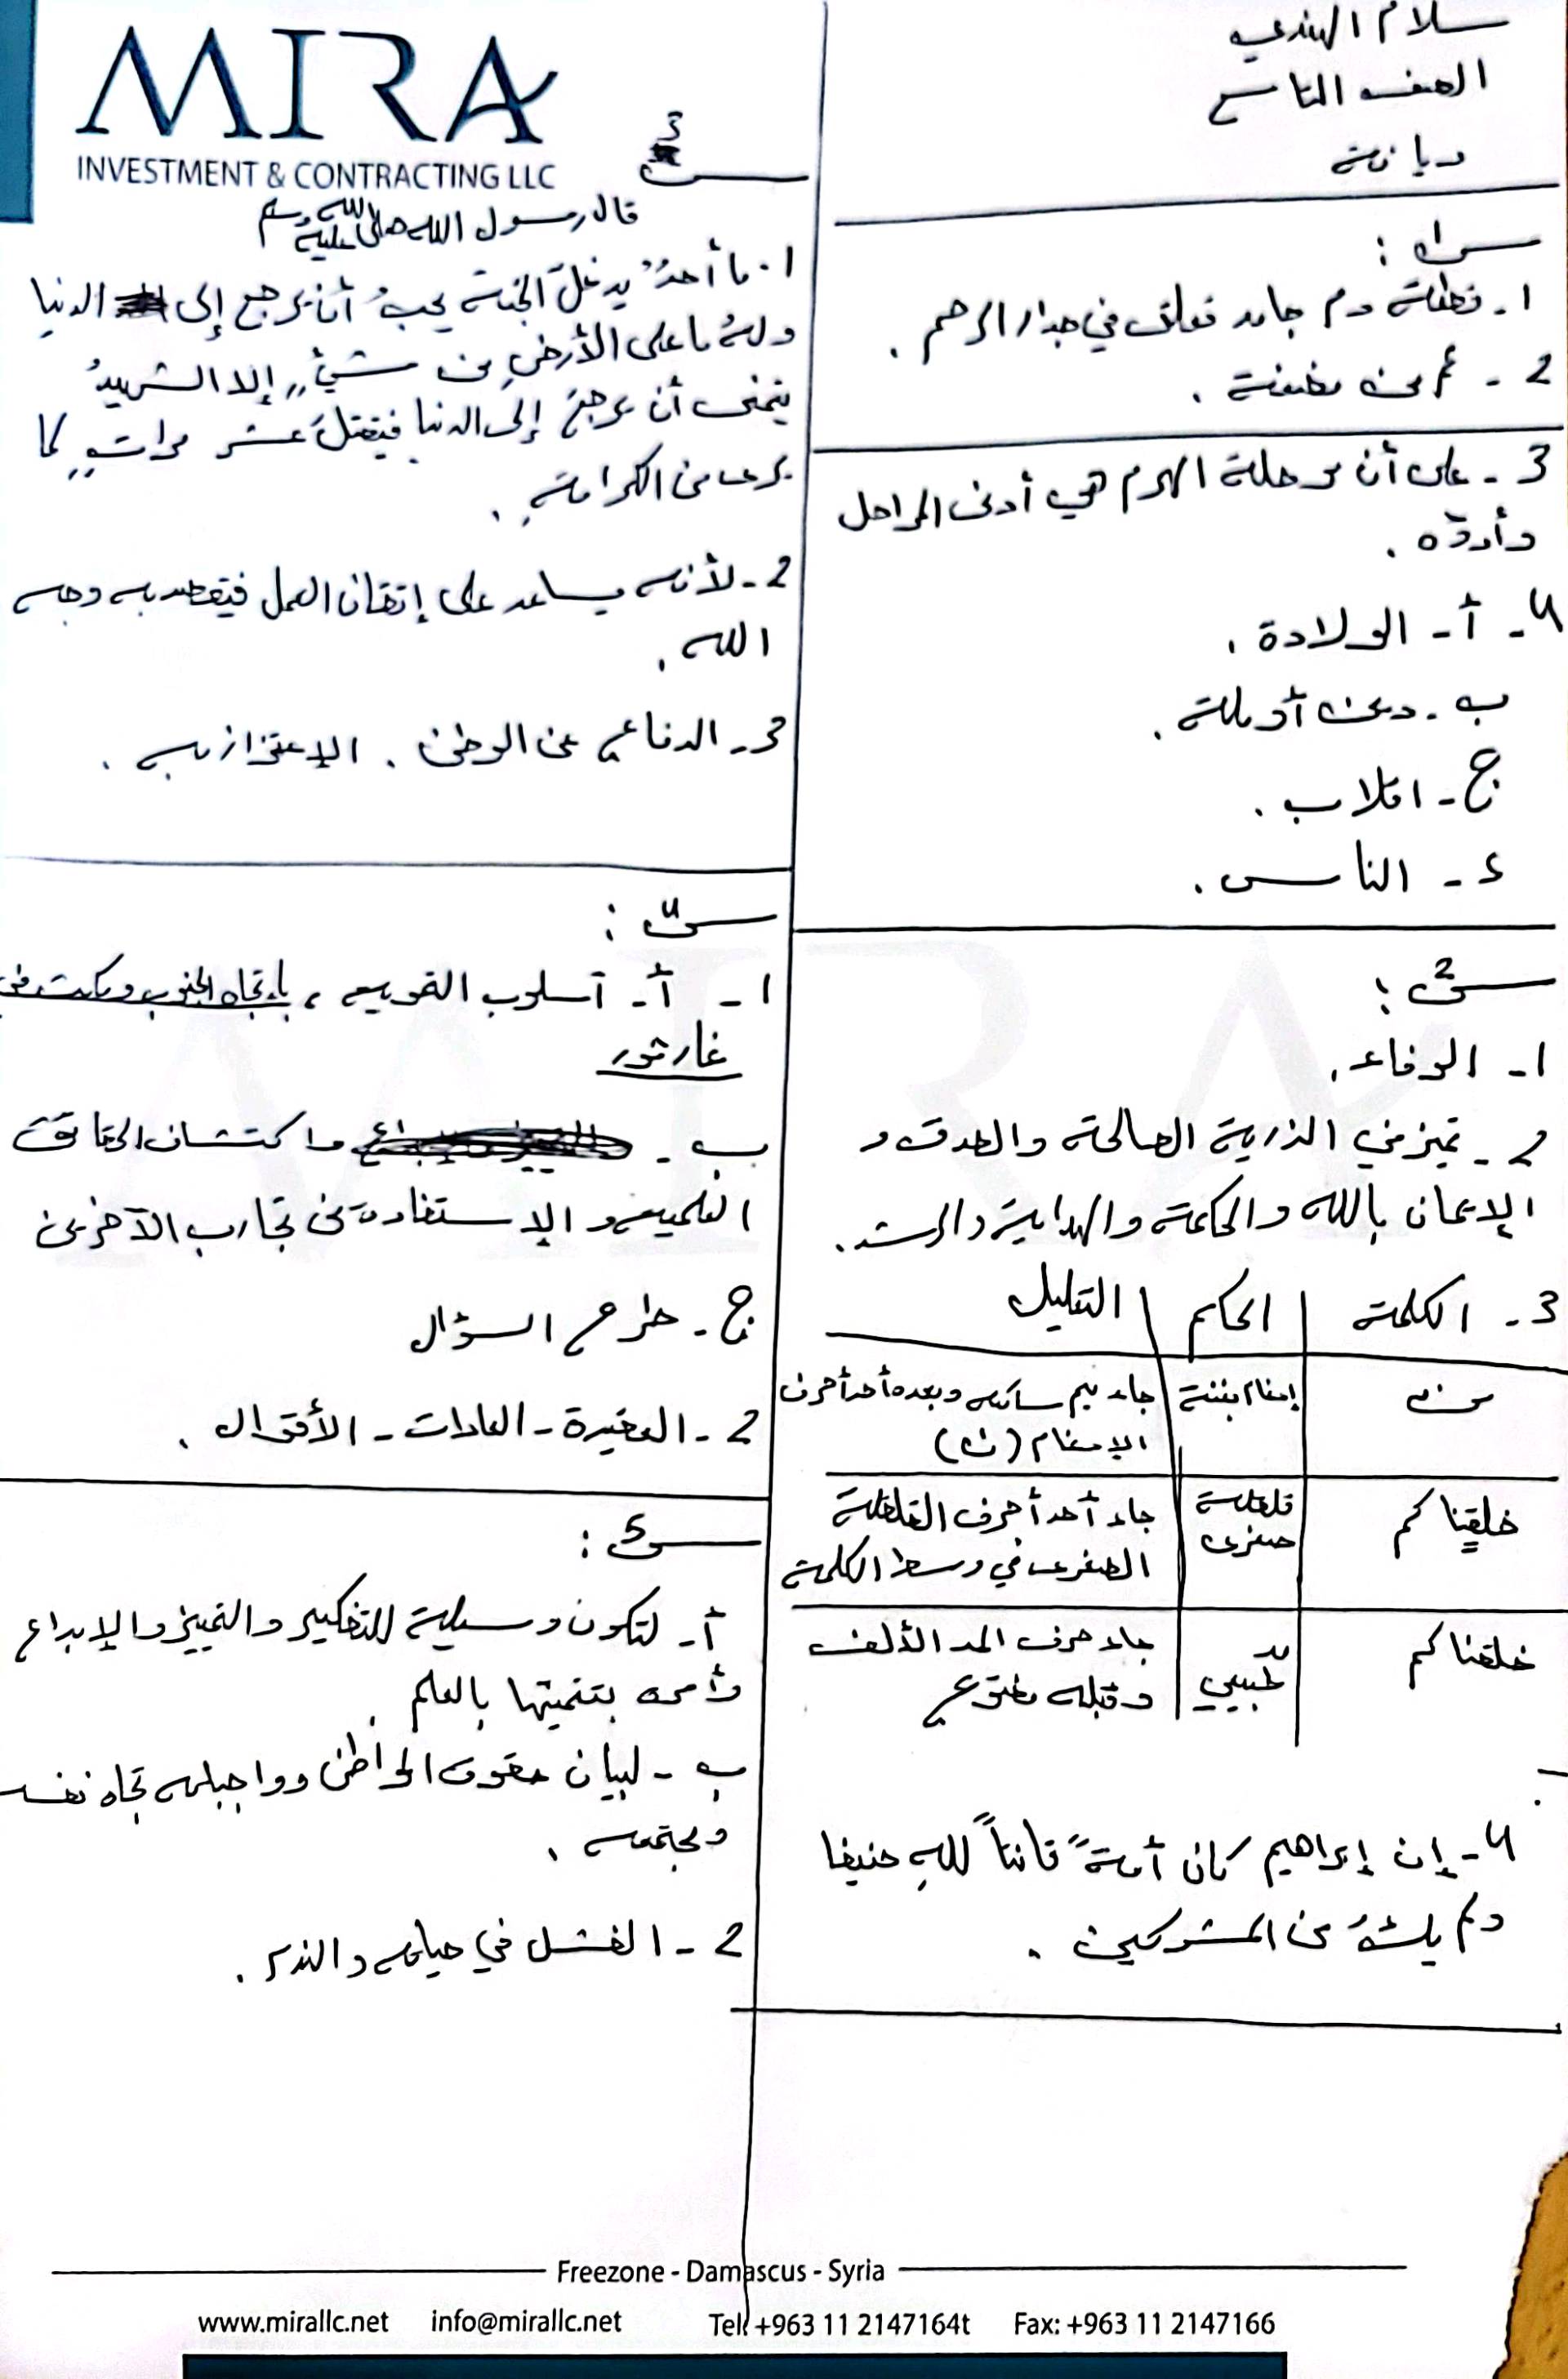 MIRA
INVESTMENT & CONTRACTING LLC
سلام الهندي
الصف التاسع
ديانة
س1:
1- نطفة دم جامد تعلق في جدار الرحم.
2- ثم من مضغة.
3- على أن مرحلة الهرم هي أدنى المراحل
وأردؤه.
4- أ- الولادة.
ب- دعت أو ملت.
ج-
د- الناس.
س2:
1- الوفاء.
2- تميز في الذرية الصالحة والصدق و
الإيمان بالله والحكمة والهداية والرشد.
3- الكلمة | الحكم | التعليل
من | إدغام بغنة | جاء ميم ساكنة وبعده أحد أحرف
الإدغام (ن)
خلقناكم | قلقلة صغرى | جاء أحد أحرف القلقلة
الصغرى في وسط الكلمة
خلقناكم | مد طبيعي | جاء حرف المد الألف
وقبله مفتوح
4- إن إبراهيم كان أمةً قانتاً للهِ حنيفا
ولم يكُ من المشركين.
س3
قال رسول الله صلى الله عليه وسلم
1- ما أحدٌ يدخلُ الجنة يحبُ أن يرجع إلى الدنيا
وله ما على الأرضِ من شيءٍ إلا الشهيدُ
يتمنى أن يرجعَ إلى الدنيا فيقتلَ عشر مراتٍ كما
يرى من الكرامةِ.
2- لأنه يساعد على إتقان العمل فيقصد به وجه
الله.
3- الدفاع عن الوطن. الإعتزاز به.
س4:
1- أ- أسلوب التمويه، باتجاه الجنوب ومكث في
غار ثور
ب- واكتشاف الحقائق
العلمية والإستفادة من تجارب الآخرين
ج- طرح السؤال
2- العقيدة - العادات - الأقوال.
س5:
أ- لتكون وسيلة للتفكير والتمييز والإبداع
وأمره بتنميتها بالعلم.
ب- لبيان حقوق المواطن وواجباته تجاه نفسه
ومجتمعه.
2- الفشل في حياته والندم.
Freezone - Damascus - Syria
www.mirallc.net info@mirallc.net Tel: +963 11 2147164t Fax: +963 11 2147166